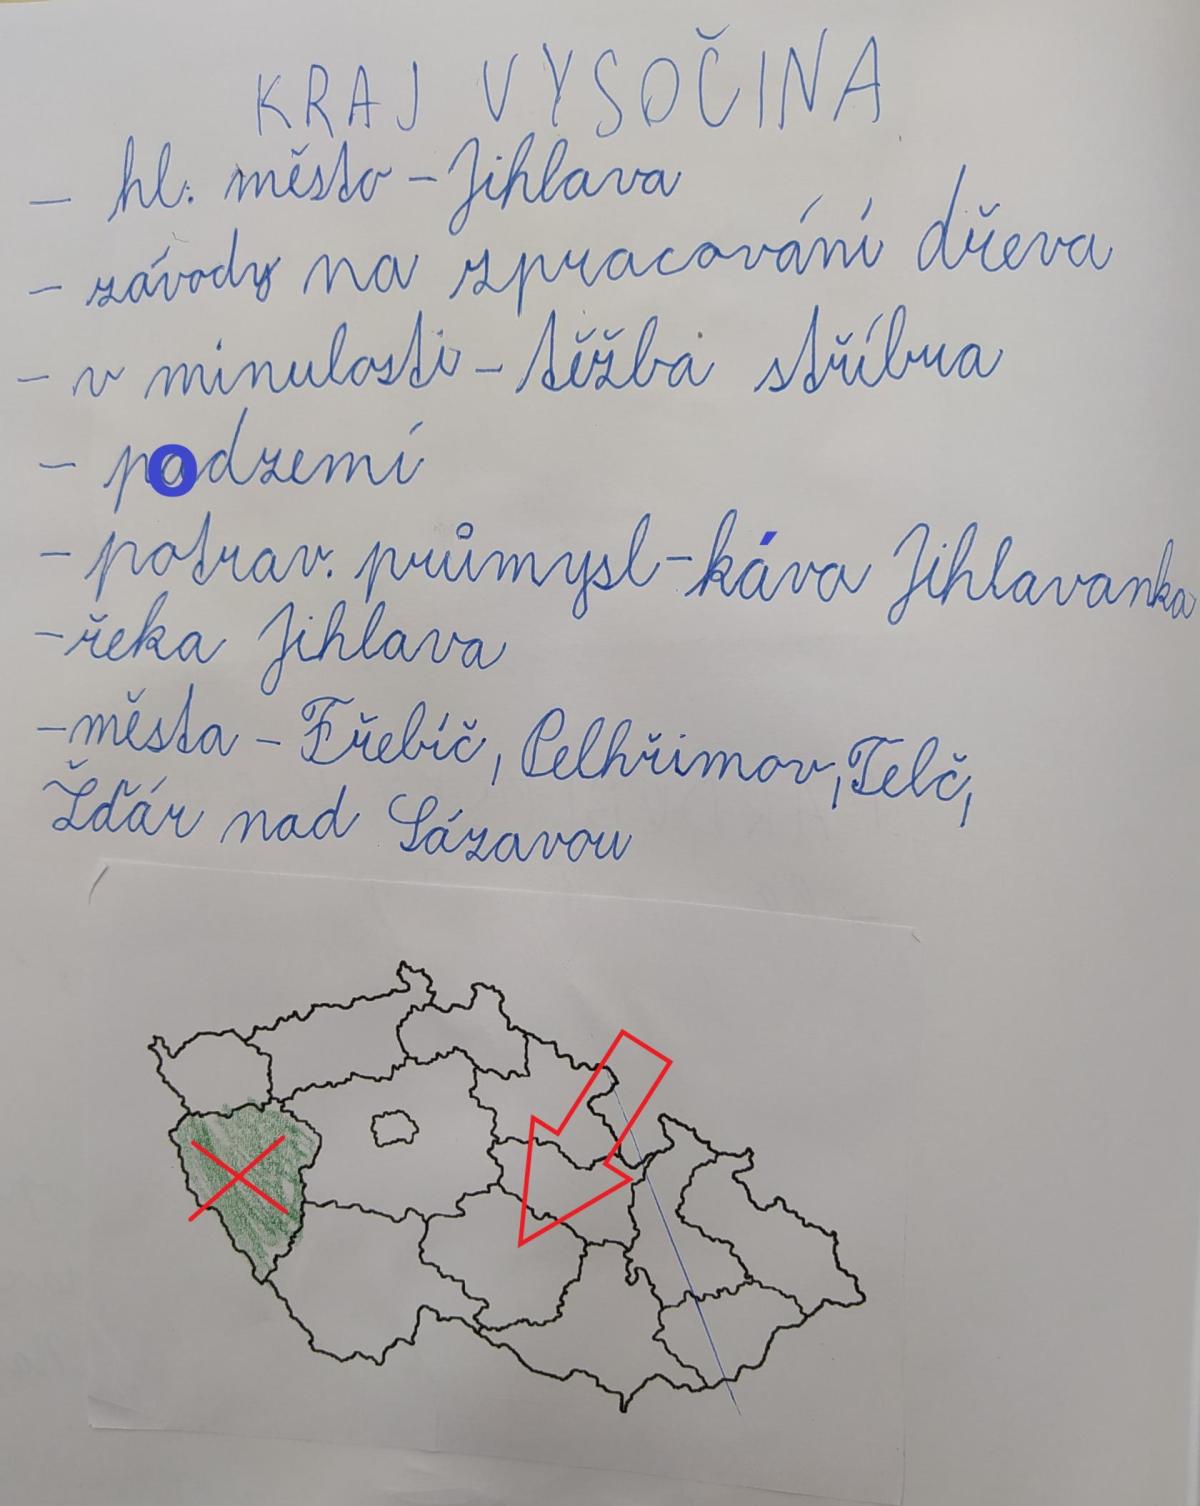 KRAJ VYSOČINA
- hl. město - Jihlava
- závody na zpracování dřeva
- v minulosti - těžba stříbra
- podzemí
- potrav. průmysl - káva Jihlavanka
- řeka Jihlava
- města - Třebíč, Pelhřimov, Telč,
Žďár nad Sázavou